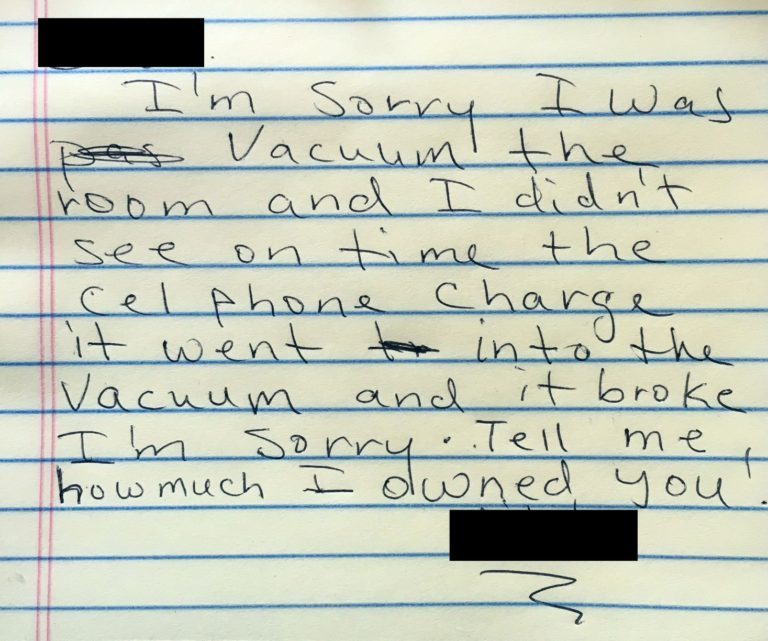 I'm Sorry I was
Vacuum the
room and I didn't
see on time the
Cel phone Charge
it went into the
Vacuum and it broke
I'm Sorry. Tell me,
how much I owned you!